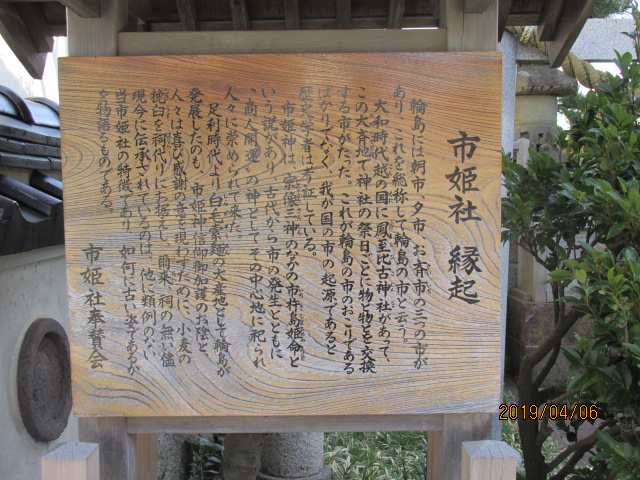 市姫社 縁起
輪島には朝市、夕市、お斉市の三つの市が
あり、これを総称して輪島の市と云う。
大和時代越の国に鳳至比古神社があって、
この大斉地で神社の祭日ごとに物と物とを交換
する市がたった。これが輪島の市のおこりである
ばかりでなく、我が国の市の起源であると
歴史学者は考証している。
市姫神は、宗像三神のなかの市杵島姫命と
いう説があり、古代から市の発生とともに
"商人開運"の神としてその中心地に祀られ
人々に崇められて来た。
足利時代より白毛素麺の大産地として輪島が
発展したのも、市姫神信仰御加護のお陰と、
人々は喜び感謝の意を現わすために、小麦の
挽臼を祠代りにお据えをし、爾来、祠の無い儘
現今に伝承されているのは、他に類例のない
当市姫社の特徴であり、如何に古い姿であるか
を物語るものである。
市姫社奉賛会
2019/04/06